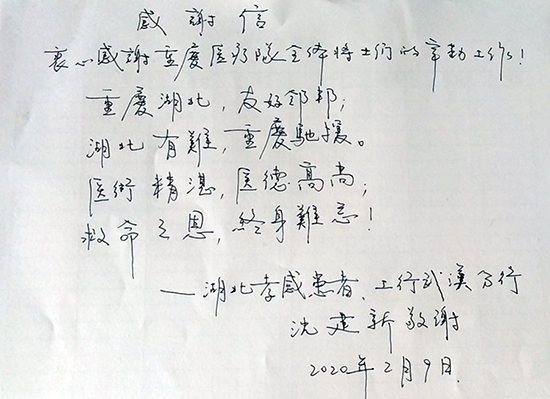 感謝信
衷心感謝重慶医疗隊全体将士们的辛勤工作!
重慶湖北,友好邻邦;
湖北有難,重慶馳援。
医術精湛,医德高尚;
救命之恩,終身難忘!
——湖北孝感患者、工行武漢分行
沈建新敬謝
2020年2月9日.